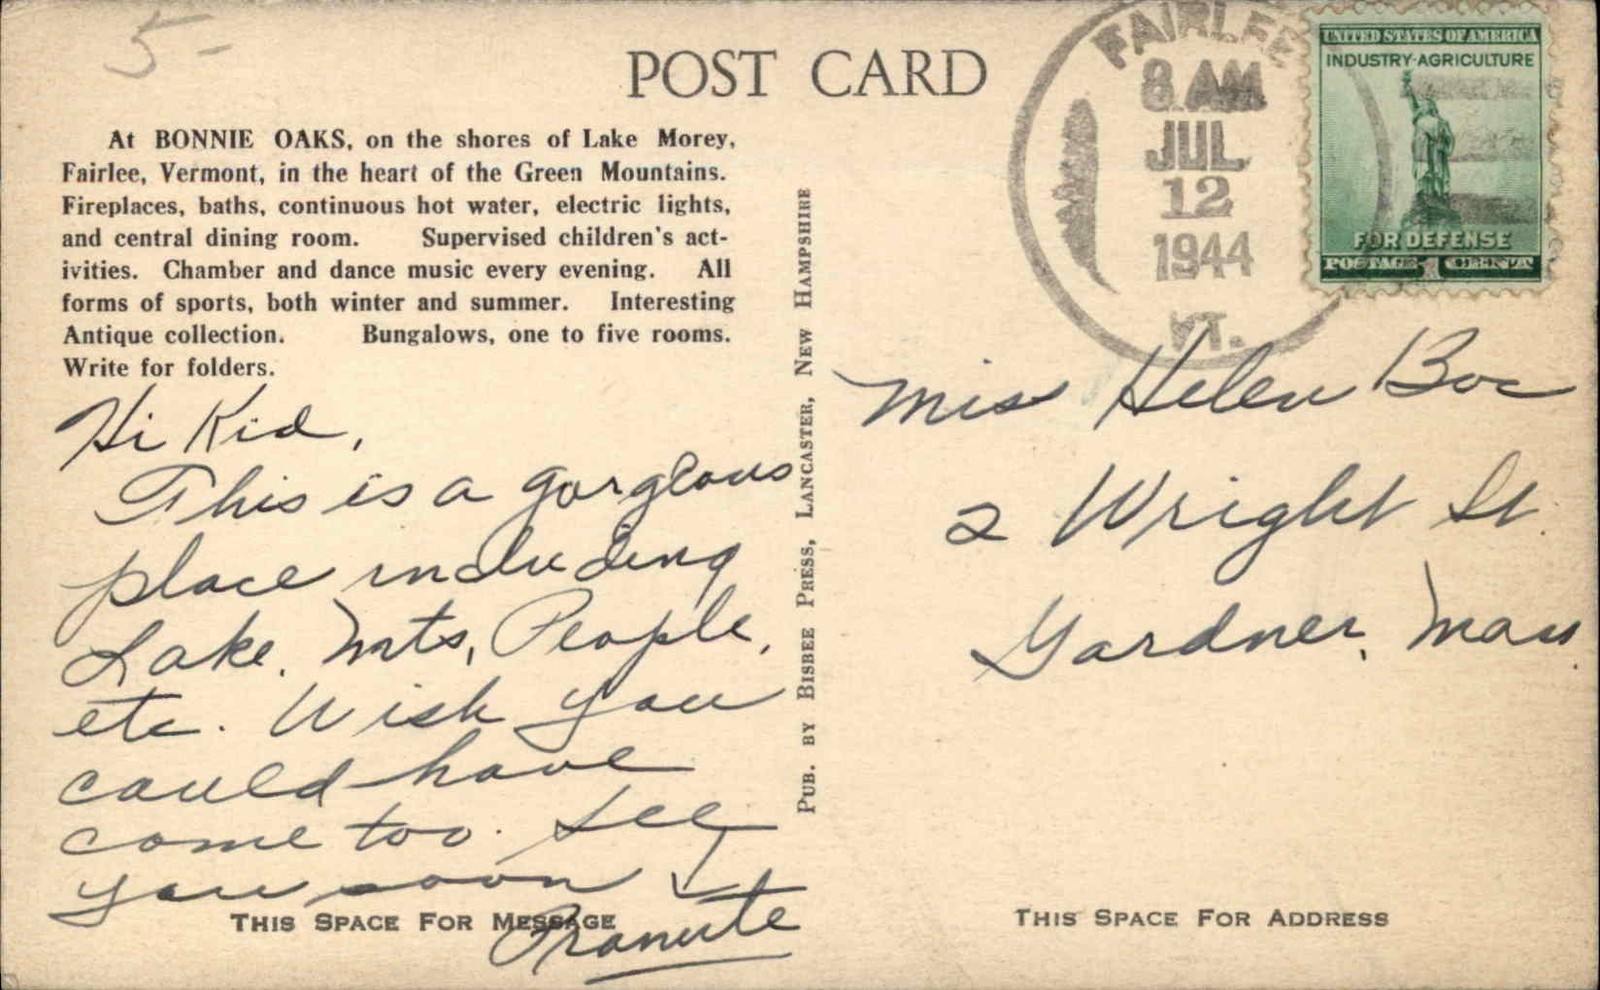 5-
POST CARD
At BONNIE OAKS, on the shores of Lake Morey,
Fairlee, Vermont, in the heart of the Green Mountains.
Fireplaces, baths, continuous hot water, electric lights,
and central dining room. Supervised children's act-
ivities. Chamber and dance music every evening. All
forms of sports, both winter and summer. Interesting
Antique collection. Bungalows, one to five rooms.
Write for folders.
Hi Kid,
This is a gorgeous
place including
Lake, Mts, People,
etc. Wish you
could have
come too. See
you soon
THIS SPACE FOR MESSAGE
PUB. BY BISBEE PRESS, LANCASTER, NEW HAMPSHIRE
FAIRLEE
8 AM
JUL
12
1944
VT.
UNITED STATES OF AMERICA
INDUSTRY·AGRICULTURE
FOR DEFENSE
POSTAGE 1 CENT
Miss Helen
2 Wright St.
Gardner, Mass.
THIS SPACE FOR ADDRESS